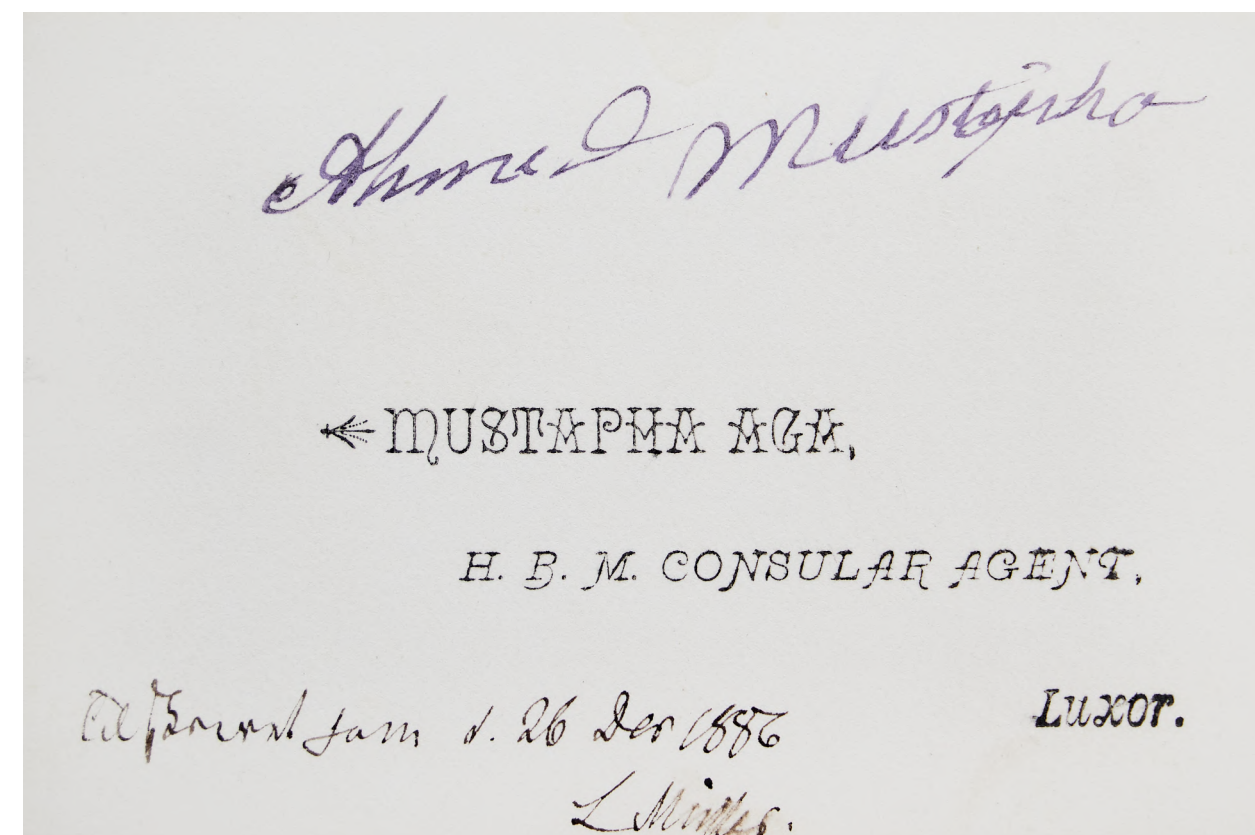 Ahmed Mustapha
MUSTAPHA AGA,
H. B. M. CONSULAR AGENT,
d. 26 Dec 1886
Luxor.
L